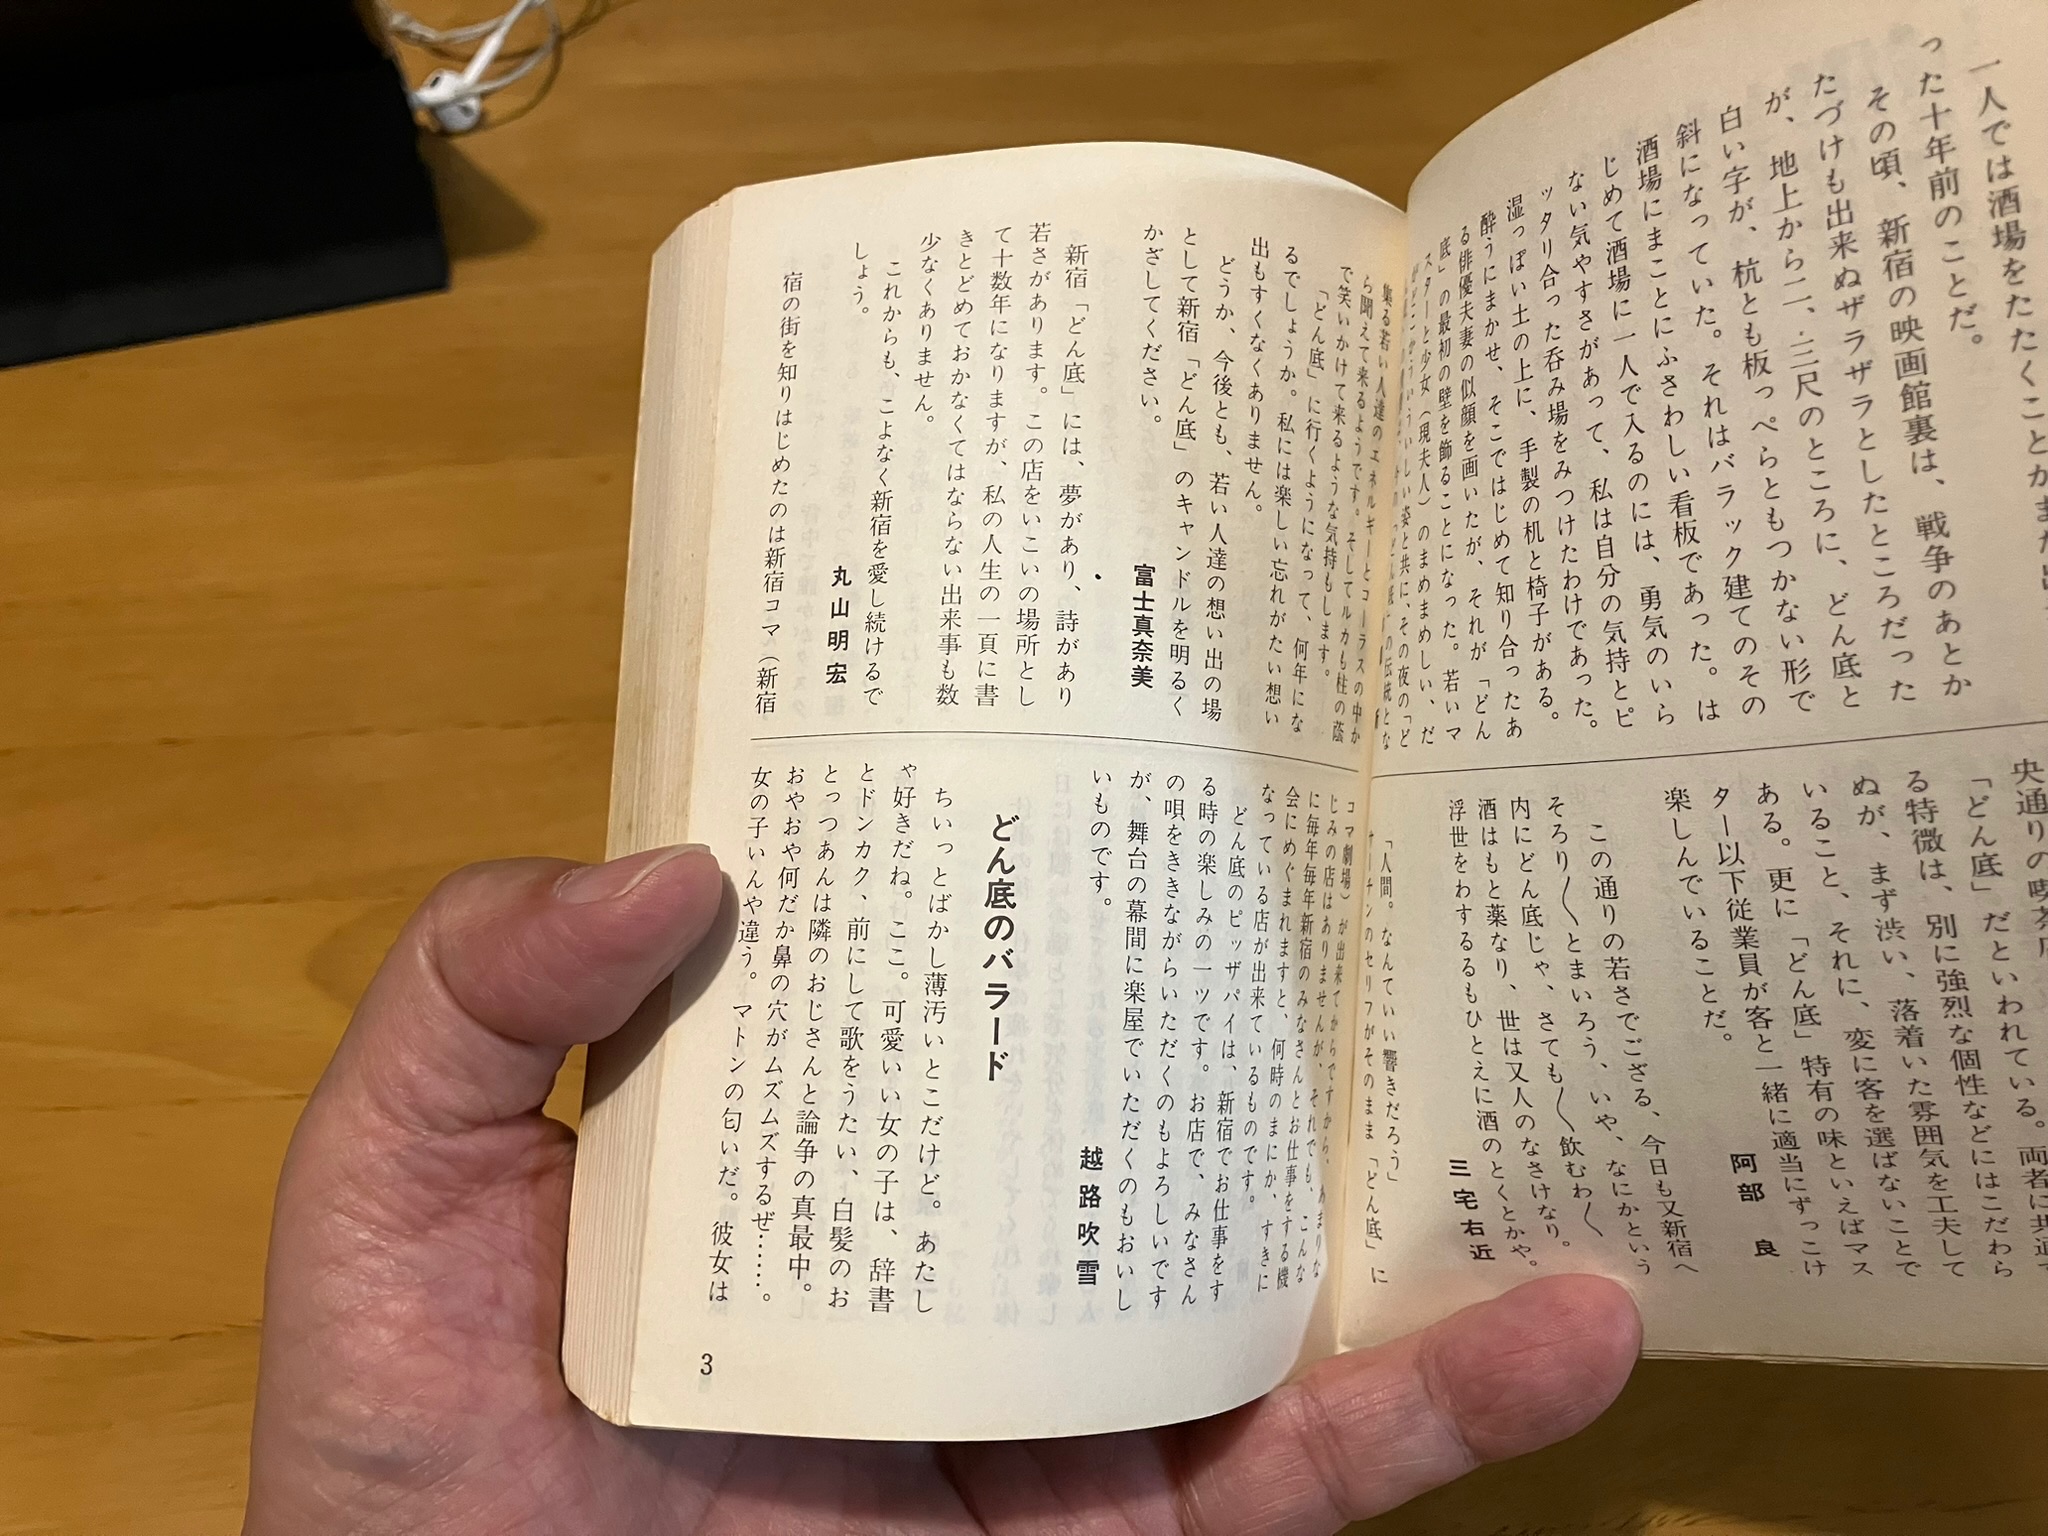 一人では酒場をたたくことがまだ出
った十年前のことだ。
その頃、新宿の映画館裏は、戦争のあとか
たづけも出来ぬザラザラとしたところだった
が、地上から二、三尺のところに、どん底と
白い字が、杭とも板っぺらともつかない形で
斜になっていた。それはバラック建てのその
酒場にまことにふさわしい看板であった。は
じめて酒場に一人で入るのには、勇気のいら
ない気やすさがあって、私は自分の気持とピ
ッタリ合った呑み場をみつけたわけであった。
湿っぽい土の上に、手製の机と椅子がある。
酔うにまかせ、そこではじめて知り合ったあ
る俳優夫妻の似顔を画いたが、それが「どん
底」の最初の壁を飾ることになった。若いマ
スターと少女（現夫人）のまめまめしい、だ
央通りの喫茶店
「どん底」だといわれている。両者に共通す
る特微は、別に強烈な個性などにはこだわら
ぬが、まず渋い、落着いた雰囲気を工夫して
いること、それに、変に客を選ばないことで
ある。更に「どん底」特有の味といえばマス
ター以下従業員が客と一緒に適当にずっこけ
楽しんでいることだ。
阿部　良
この通りの若さでござる、今日も又新宿へ
そろり〱とまいろう、いや、なにかという
内にどん底じゃ、さても〱飲むわ〱
酒はもと薬なり、世は又人のなさけなり。
浮世をわするるもひとえに酒のとくとかや。
三宅右近
「人間。なんていい響きだろう」
サーチンのセリフがそのまま「どん底」に
集る若い人達のエネルギーとコーラスの中か
ら聞えて来るようです。そしてルカも柱の蔭
で笑いかけて来るような気持もします。
「どん底」に行くようになって、何年にな
るでしょうか。私には楽しい忘れがたい想い
出もすくなくありません。
どうか、今後とも、若い人達の想い出の場
として新宿「どん底」のキャンドルを明るく
かざしてください。
富士真奈美
新宿「どん底」には、夢があり、詩があり
若さがあります。この店をいこいの場所とし
て十数年になりますが、私の人生の一頁に書
きとどめておかなくてはならない出来事も数
少なくありません。
これからも、こよなく新宿を愛し続けるで
しょう。
丸山明宏
宿の街を知りはじめたのは新宿コマ（新宿
コマ劇場）が出来てからですから、あまりな
じみの店はありませんが、それでも、こんな
に毎年毎年新宿のみなさんとお仕事をする機
会にめぐまれますと、何時のまにか、すきに
なっている店が出来ているものです。
どん底のピッザパイは、新宿でお仕事をす
る時の楽しみの一ツです。お店で、みなさん
の唄をききながらいただくのもよろしいです
が、舞台の幕間に楽屋でいただくのもおいし
いものです。
越路吹雪
どん底のバラード
ちいっとばかし薄汚いとこだけど。あたし
ゃ好きだね。ここ。可愛いい女の子は、辞書
とドンカク、前にして歌をうたい、白髪のお
とっつあんは隣のおじさんと論争の真最中。
おやおや何だか鼻の穴がムズムズするぜ……。
女の子いんや違う。マトンの匂いだ。彼女は
3